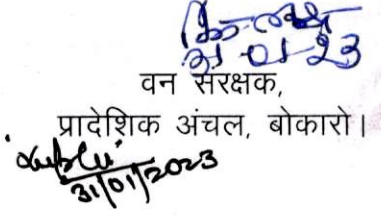 31-01-23
वन संरक्षक,
प्रादेशिक अंचल, बोकारो।
31/01/2023